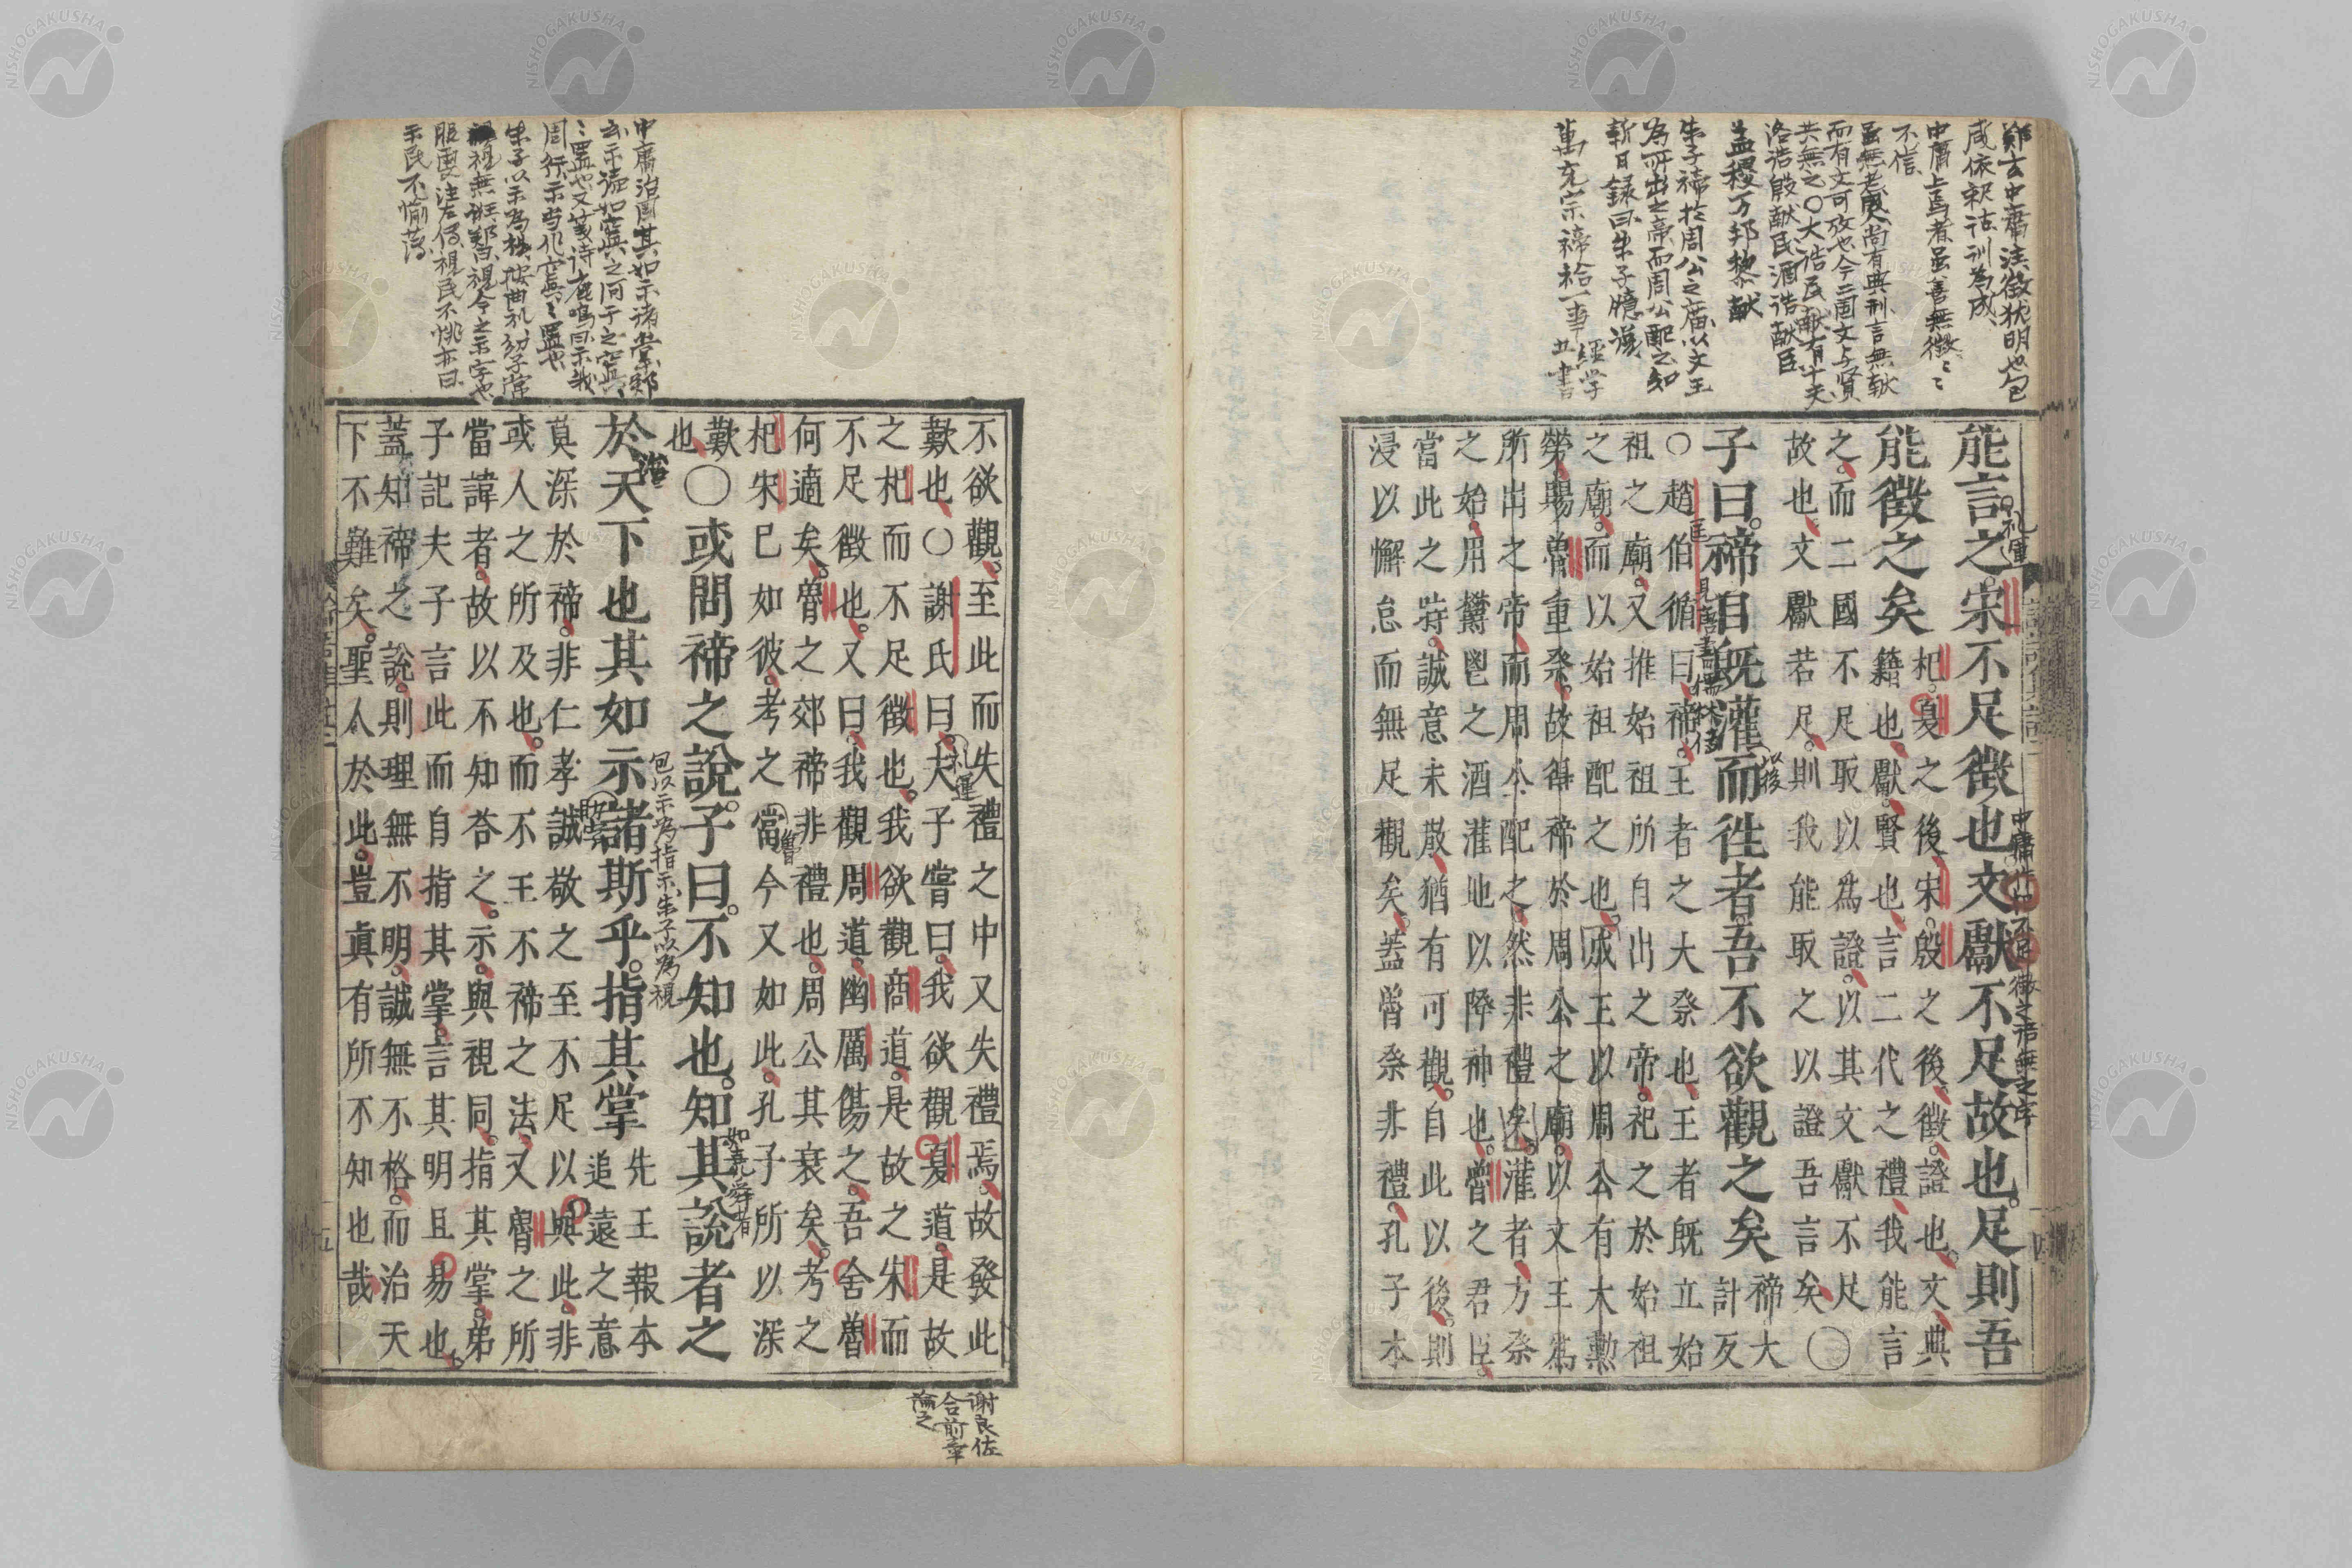 鄭玄中庸注徵犹明也包
咸依釈詁訓為成
中庸上焉者虽善無徵〻〻
不信
虽無老成人尚有典刑言無献
而有文可攷也今二国文与贤
共無之〇大誥民献有十夫
洛誥殷献民酒誥献臣
益稷万邦黎献
朱子禘於周公之廣以文王
為所出之帝而周公配之知
新日録曰朱子臆说
萬充宗禘祫一事 経学
五書
能言之宋不足徵也文獻不足故也足則吾
礼運
中庸
徵之君無之字
能徵之矣
杞夏之後宋殷之後徵證也文典
籍也獻賢也言二代之禮我能言
之而二國不足取以為證以其文獻不足
故也文獻若足則我能取之以證吾言矣〇
子曰禘自既灌而往者吾不欲觀之矣
禘大
計反
以後
匡
〇趙伯循曰禘王者之大祭也王者既立始
祖之廟又推始祖所自出之帝祀之於始祖
之廟而以始祖配之也成王以周公有大勳
勞賜魯重祭故得禘於周公之廟以文王為
所出之帝而周公配之然非禮矣灌者方祭
之始用鬱鬯之酒灌地以降神也魯之君臣
當此之時誠意未散猶有可觀自此以後則
浸以懈怠而無足觀矣蓋魯祭非禮孔子本
不欲觀至此而失禮之中又失禮焉故發此
歎也〇謝氏曰夫子嘗曰我欲觀夏道是故
礼運
之杞而不足徵也我欲觀商道是故之宋而
不足徵也又曰我觀周道幽厲傷之吾舍魯
何適矣魯之郊禘非禮也周公其衰矣考之
魯
杞宋已如彼考之當今又如此孔子所以深
歎
也
〇或問禘之說子曰不知也知其說者之
如堯舜者
於天下也其如示諸斯乎指其掌
治
包以示為指示朱子以為視
先王報本
追遠之意
莫深於禘非仁孝誠敬之至不足以與此非
或人之所及也而不王不禘之法又魯之所
當諱者故以不知答之示與視同指其掌弟
子記夫子言此而自指其掌言其明且易也
蓋知禘之說則理無不明誠無不格而治天
下不難矣聖人於此豈真有所不知也哉
中庸治国其如示诸掌郑
玄示读如寘之河干之寘〻
〻置也又箋诗鹿鳴曰示我
周行示当作寘〻置也
朱子以示為視按曲礼幼子常
視無誑郑曰視今之示字也
服虔注左传視民不恌亦曰
示民不愉薄
谢良佐
合前章
論之
NISHOGAKUSHA